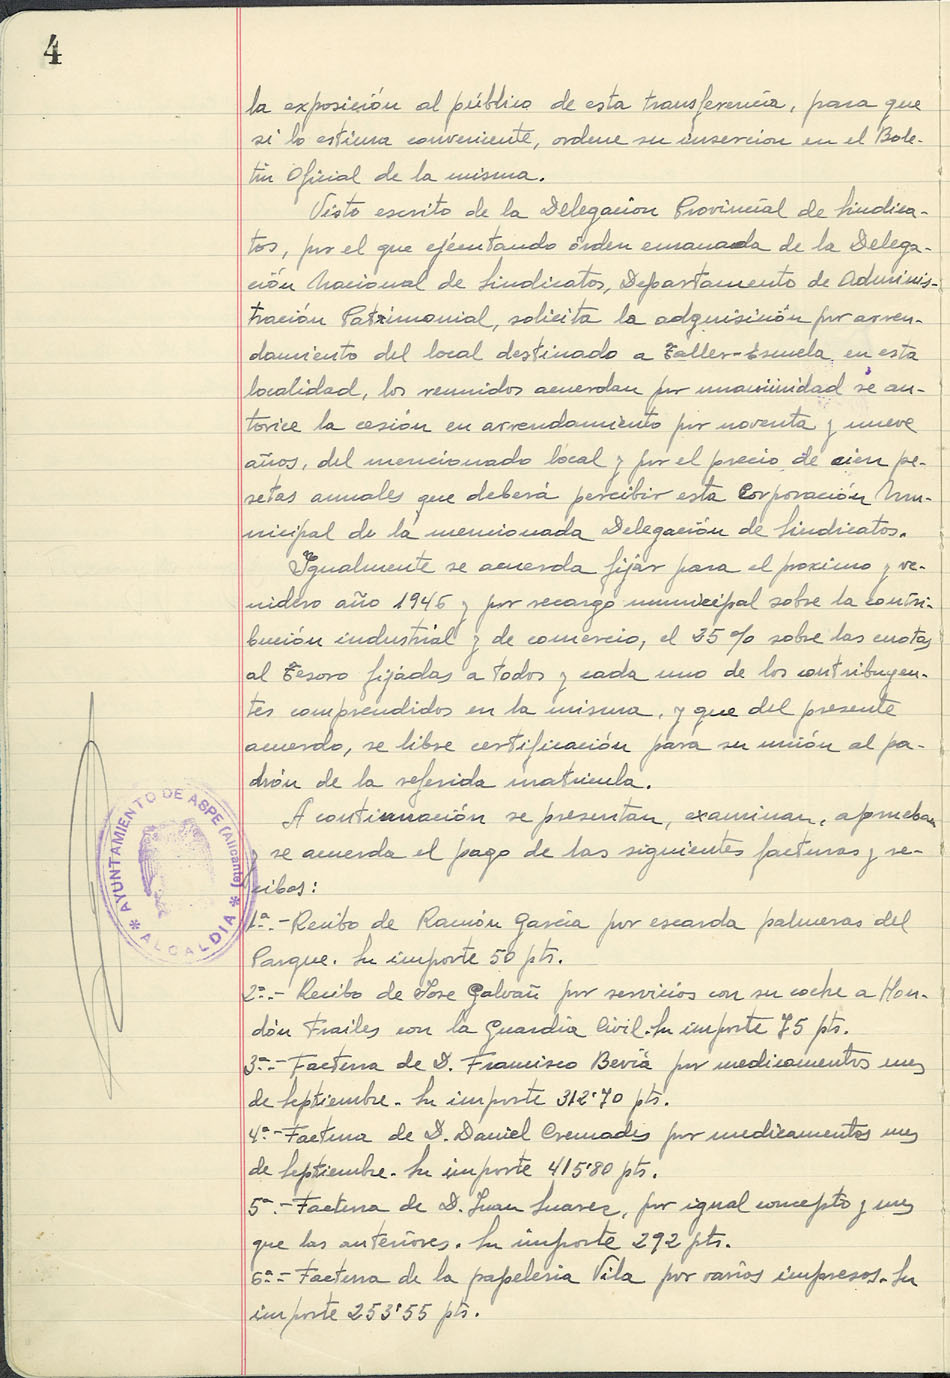 4
la exposición al público de esta transferencia, para que
si lo estima conveniente, ordene su inserción en el Bole-
tín Oficial de la misma.
Visto escrito de la Delegación Provincial de Sindica-
tos, por el que ejecutando órden emanada de la Delega-
ción Nacional de Sindicatos, Departamento de Adminis-
tración Patrimonial, solicita la adquisición por arren-
damiento del local destinado a Taller-Escuela en esta
localidad, los reunidos acuerdan por unanimidad se au-
torice la cesión en arrendamiento por noventa y nueve
años, del mencionado local y por el precio de cien pe-
setas anuales que deberá percibir esta Corporación Mu-
nicipal de la mencionada Delegación de Sindicatos.
Igualmente se acuerda fijar para el proximo y ve-
nidero año 1945 y por recargo municipal sobre la contri-
bución industrial y de comercio, el 35 % sobre las cuotas
al Tesoro fijádas a todos y cada uno de los contribuyen-
tes comprendidos en la misma, y que del presente
acuerdo, se libre certificación para su unión al pa-
drón de la referida matricula.
A continuación se presentan, examinan, aprueban
y se acuerda el pago de las siguientes facturas y re-
cibos:
1ª.- Recibo de Ramón García por escarda palmeras del
Parque. Su importe 50 pts.
2ª.- Recibo de Jose Galvañ por servicios con su coche a Hon-
dón Frailes con la Guardia Civil. Su importe 75 pts.
3ª.- Factura de D. Francisco Beviá por medicamentos mes
de Septiembre. Su importe 312'70 pts.
4ª.- Factura de D. Daniel Cremades por medicamentos mes
de Septiembre. Su importe 415'80 pts.
5ª.- Factura de D. Juan Suarez, por igual concepto y mes
que las anteriores. Su importe 292 pts.
6ª.- Factura de la papeleria Vila por varios impresos. Su
importe 253'55 pts.
AYUNTAMIENTO DE ASPE (Alicante)
* ALCALDIA *